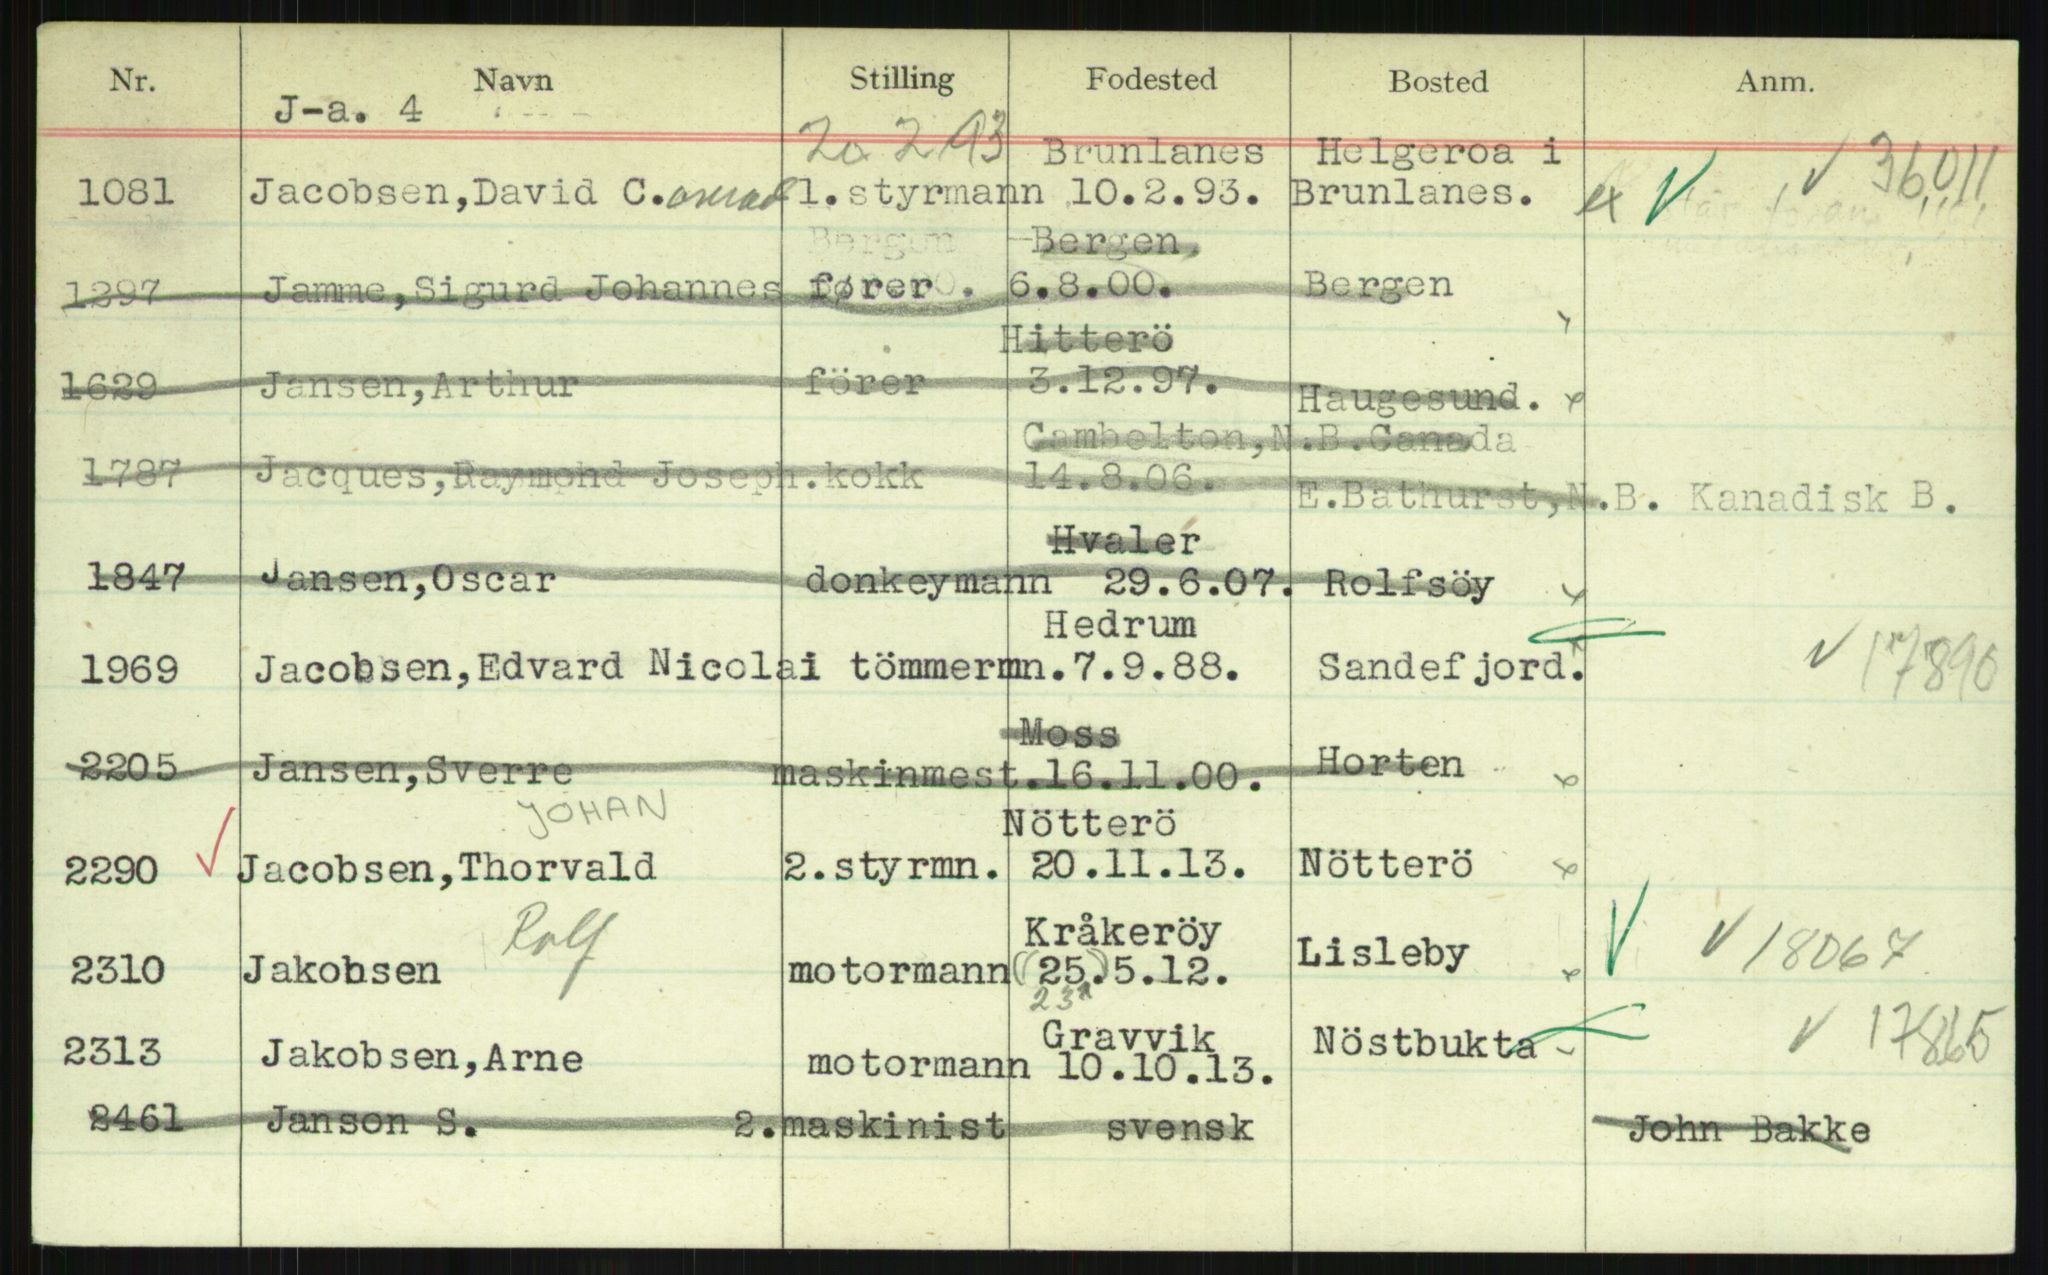 Nr. Navn Stilling Fodested Bosted Anm.
J-a. 4
20 2 93 Brunlanes Helgeroa i ✓ 36011
1081 Jacobsen,David C.onrad 1.styrmann 10.2.93. Brunlanes.
Bergen Bergen,
1297 Jamme,Sigurd Johannes fører. 6.8.00. Bergen
Hitterö
1629 Jansen,Arthur förer 3.12.97. Haugesund.
Cambelton,N.B.Canada
1787 Jacques,Raymond Joseph.kokk 14.8.06. E.Bathurst,N.B. Kanadisk B.
Hvaler
1847 Jansen,Oscar donkeymann 29.6.07. Rolfsöy
Hedrum
1969 Jacobsen,Edvard Nicolai tömmermn.7.9.88. Sandefjord. ✓ 17890
Moss
2205 Jansen,Sverre maskinmest.16.11.00. Horten
JOHAN Nötterö
2290 ✓ Jacobsen,Thorvald 2.styrmn. 20.11.13. Nötterö
Rolf Kråkeröy
2310 Jakobsen motormann (25.)5.12. Lisleby ✓ ✓ 18067
23
Gravvik
2313 Jakobsen,Arne motormann 10.10.13. Nöstbukta ✓ 17865
2461 Janson S. 2.maskinist svensk John Bakke